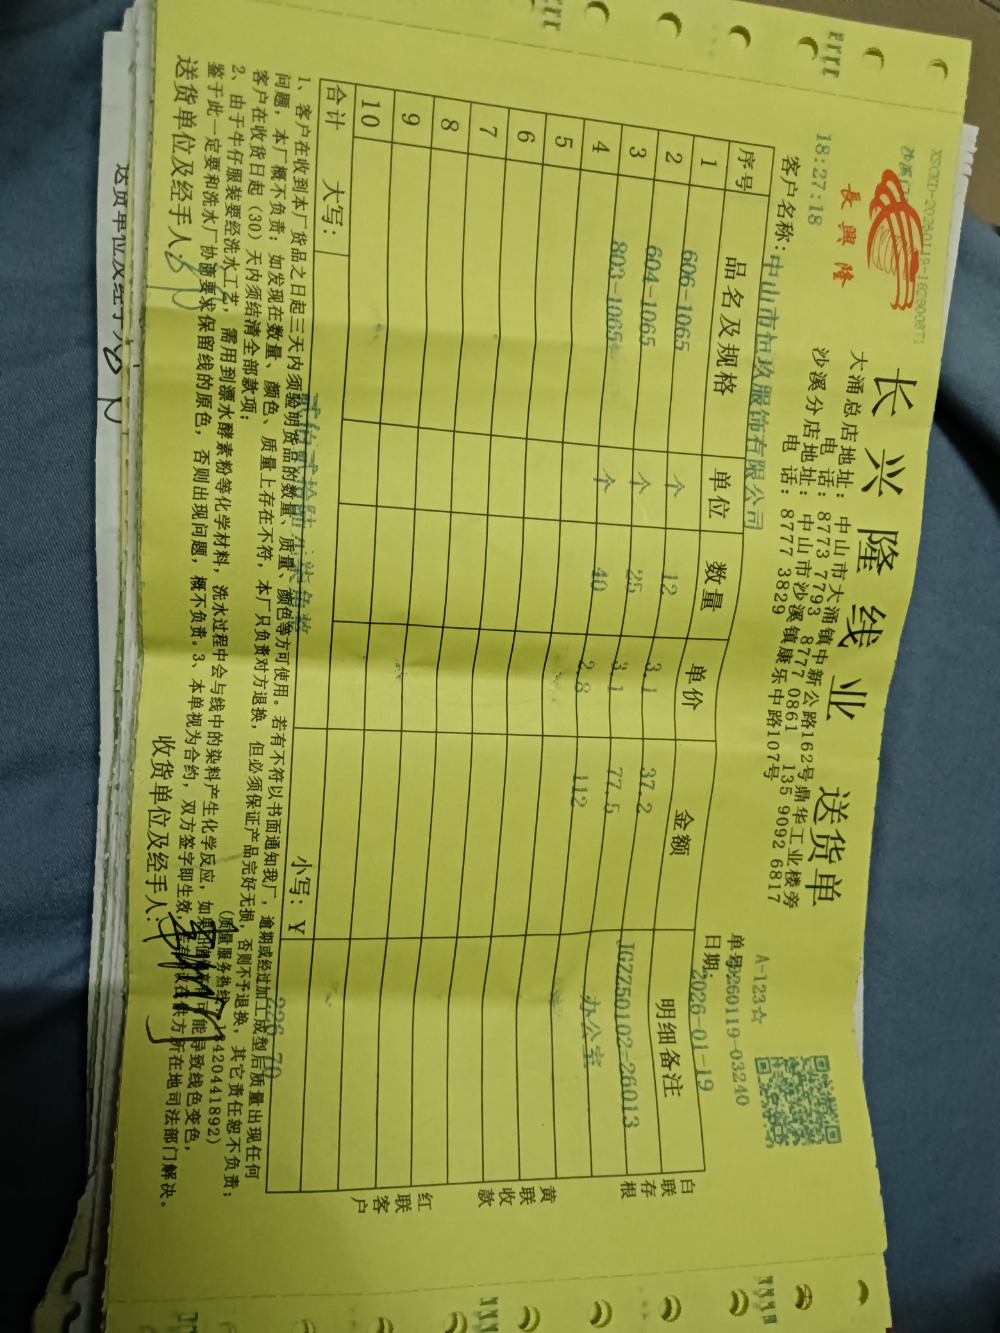 XSCKD-20260119-182800871
長興隆
长兴隆线业 送货单
大涌总店地址：中山市大涌镇中新公路162号鼎华工业楼旁
电 话：8773 7793 8777 0861 135 9092 6817
沙溪分店地址：中山市沙溪镇康乐中路107号
电 话：8777 3829
A-123☆
单号260119-03240
18:27:18
日期：2026-01-19
客户名称：中山市恒玖服饰有限公司
序号 品名及规格 单位 数量 单价 金额 明细备注
1 606-1065 个 12 3.1 37.2 JGZZ50102-26013
2 604-1065 个 25 3.1 77.5 办公室
3 803-1065 个 40 2.8 112
4
5
6
7
8
9
10
合计 大写：贰佰贰拾陆元柒角整 小写：￥ 226.70
白联存根
黄联收款
红联客户
1、客户在收到本厂货品之日起三天内须验明货品的数量、质量、颜色等方可使用。若有不符以书面通知我厂，逾期或经过加工成型后质量出现任何
问题，本厂概不负责；如发现在数量、颜色、质量上存在不符，本厂只负责对方退换，但必须保证产品完好无损，否则不予退换，其它责任恕不负责；
客户在收货日起（30）天内须结清全部款项；
（质量服务热线：18420441892）
2、由于牛仔服装要经洗水工艺，需用到漂水酵素粉等化学材料，洗水过程中会与线中的染料产生化学反应，如果可能导致线色变色，
鉴于此一定要和洗水厂协商要求保留线的原色，否则出现问题，概不负责。3、本单视为合约，双方签字即生效，在供方所在地司法部门解决。
送货单位及经手人： 收货单位及经手人：
送货单位及经手人